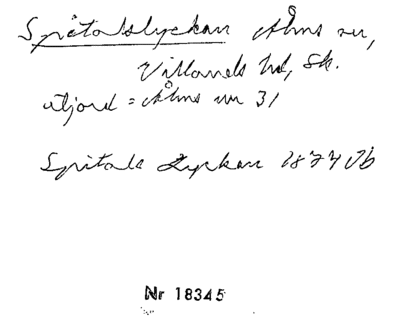 Spitalslyckan Åhus sn,
Villands hd, Sk.
utjord = Åhus nr 31
Spitals Lyckan 1877 Jb
Nr 18345